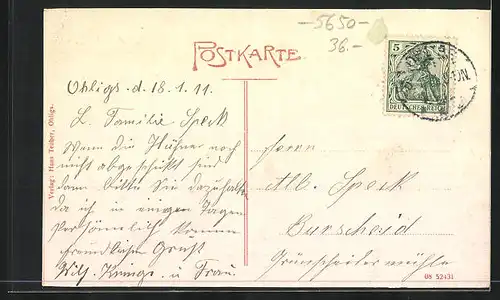 -5650-
36.-
POSTKARTE
5
DEUTSCHES REICH
Ohligs. d. 18.1.11.
L. Familie Speck
Wenn die Hühner noch
nicht abgeschickt sind
dann bitte Sie dazuhalten
da ich in einigen Tagen
Persönlich komme
freundlichen Gruß
Wilh. u Frau.
Herrn
Alb. Speck
Burscheid
Grünscheidermühle
Verlag: Hans Tether, Ohligs.
08 52431